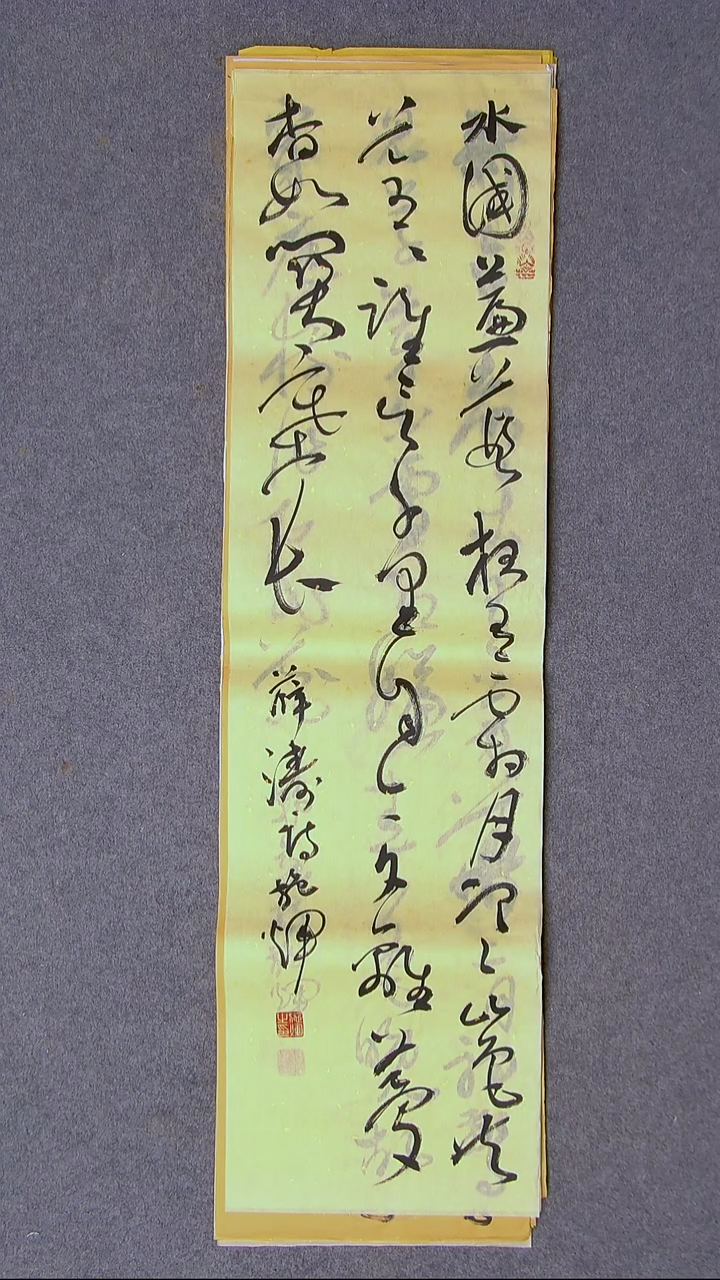 水國蒹葭夜有霜月寒山色共
蒼蒼誰言千里自今夕離夢
杳如關塞長
薛濤詩施煇